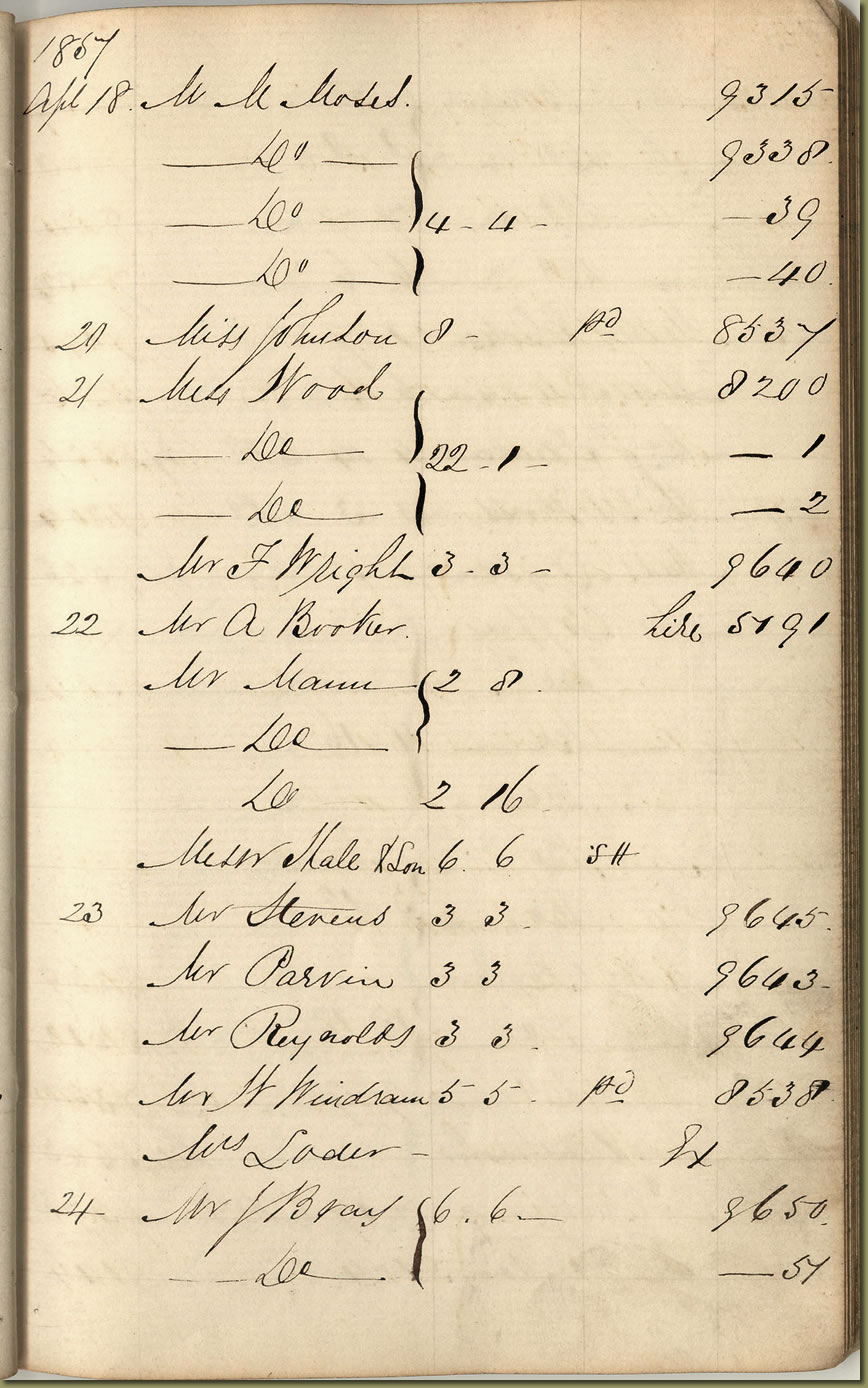 1857
Apl 18. M M Moses. 9315
— Do — 9338.
— Do — 4 - 4 - — 39
— Do — — 40.
20 Miss Johnson 8 - pd 8537
21 Miss Wood 8200
— Do — 22 - 1 - — 1
— Do — — 2
Mr F Wright 3 - 3 - 9640
22 Mr A Booker. hire 5191
Mr Mann 2 8.
— Do —
Do 2 16
Messrs Hale & Son 6. 6
23 Mr Stevens 3 3. 9645.
Mr Parvin 3 3 9643-
Mr Reynolds 3 3. 9644
Mr W Windram 5 5. pd 8538.
Mrs Loder - Ex
24 Mr J Bray 6. 6 — 9650.
— Do — — 51